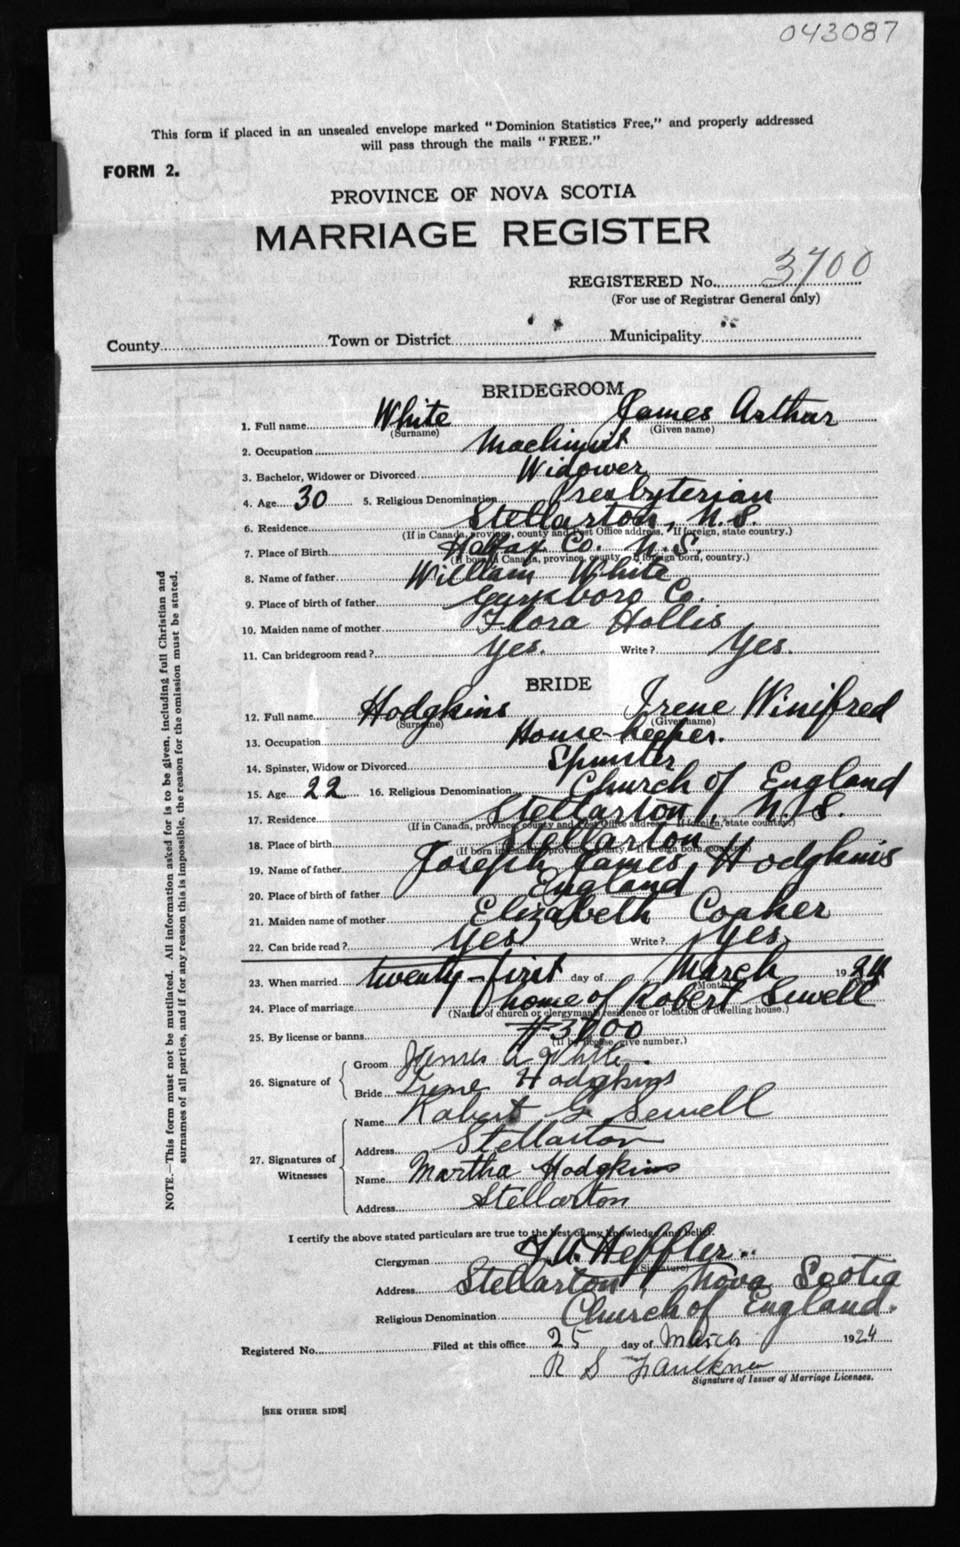 043087
This form if placed in an unsealed envelope marked "Dominion Statistics Free," and properly addressed
will pass through the mails "FREE."
FORM 2.
PROVINCE OF NOVA SCOTIA
MARRIAGE REGISTER
REGISTERED No. 3700
(For use of Registrar General only)
County Town or District Municipality
BRIDEGROOM
1. Full name White James Arthar
(Surname) (Given name)
2. Occupation Machinist
3. Bachelor, Widower or Divorced Widower
4. Age 30 5. Religious Denomination Presbyterian
6. Residence Stellarton, N.S.
(If in Canada, province, county and Post Office address, If foreign, state country.)
7. Place of Birth Halifax Co. N.S.
(If born in Canada, province, county If foreign born, country.)
8. Name of father William White
9. Place of birth of father Guysboro Co.
10. Maiden name of mother Flora Hollis
11. Can bridegroom read? Yes. Write? Yes.
BRIDE
12. Full name Hodgkins Irene Winifred
(Surname) (Given name)
13. Occupation House-keeper.
14. Spinster, Widow or Divorced Spinster
15. Age 22 16. Religious Denomination Church of England
17. Residence Stellarton, N.S.
(If in Canada, province, county and Post Office address If foreign, state country.)
18. Place of birth Stellarton
(If born in Canada, province, county If foreign born, country.)
19. Name of father Joseph James Hodgkins
20. Place of birth of father England
21. Maiden name of mother Elizabeth Coaker
22. Can bride read? Yes Write? Yes
23. When married twenty-first day of March 1924
(Month)
24. Place of marriage home of Robert Sewell
(Name of church or clergyman's residence or location of dwelling house.)
25. By license or banns #3700
(If by license, give number.)
26. Signature of Groom James A White.
Bride Irene Hodgkins
27. Signatures of Witnesses Name Robert G Sewell
Address Stellarton
Name Martha Hodgkins
Address Stellarton
I certify the above stated particulars are true to the best of my knowledge and belief.
Clergyman Heffler..
(Signature)
Address Stellarton, Nova Scotia
Religious Denomination Church of England.
Registered No. Filed at this office 25 day of March 1924
R S Faulkner
Signature of Issuer of Marriage Licenses.
[SEE OTHER SIDE]
NOTE.—This form must not be mutilated. All information asked for is to be given, including full Christian and
surnames of all parties, and if for any reason this is impossible, the reason for the omission must be stated.